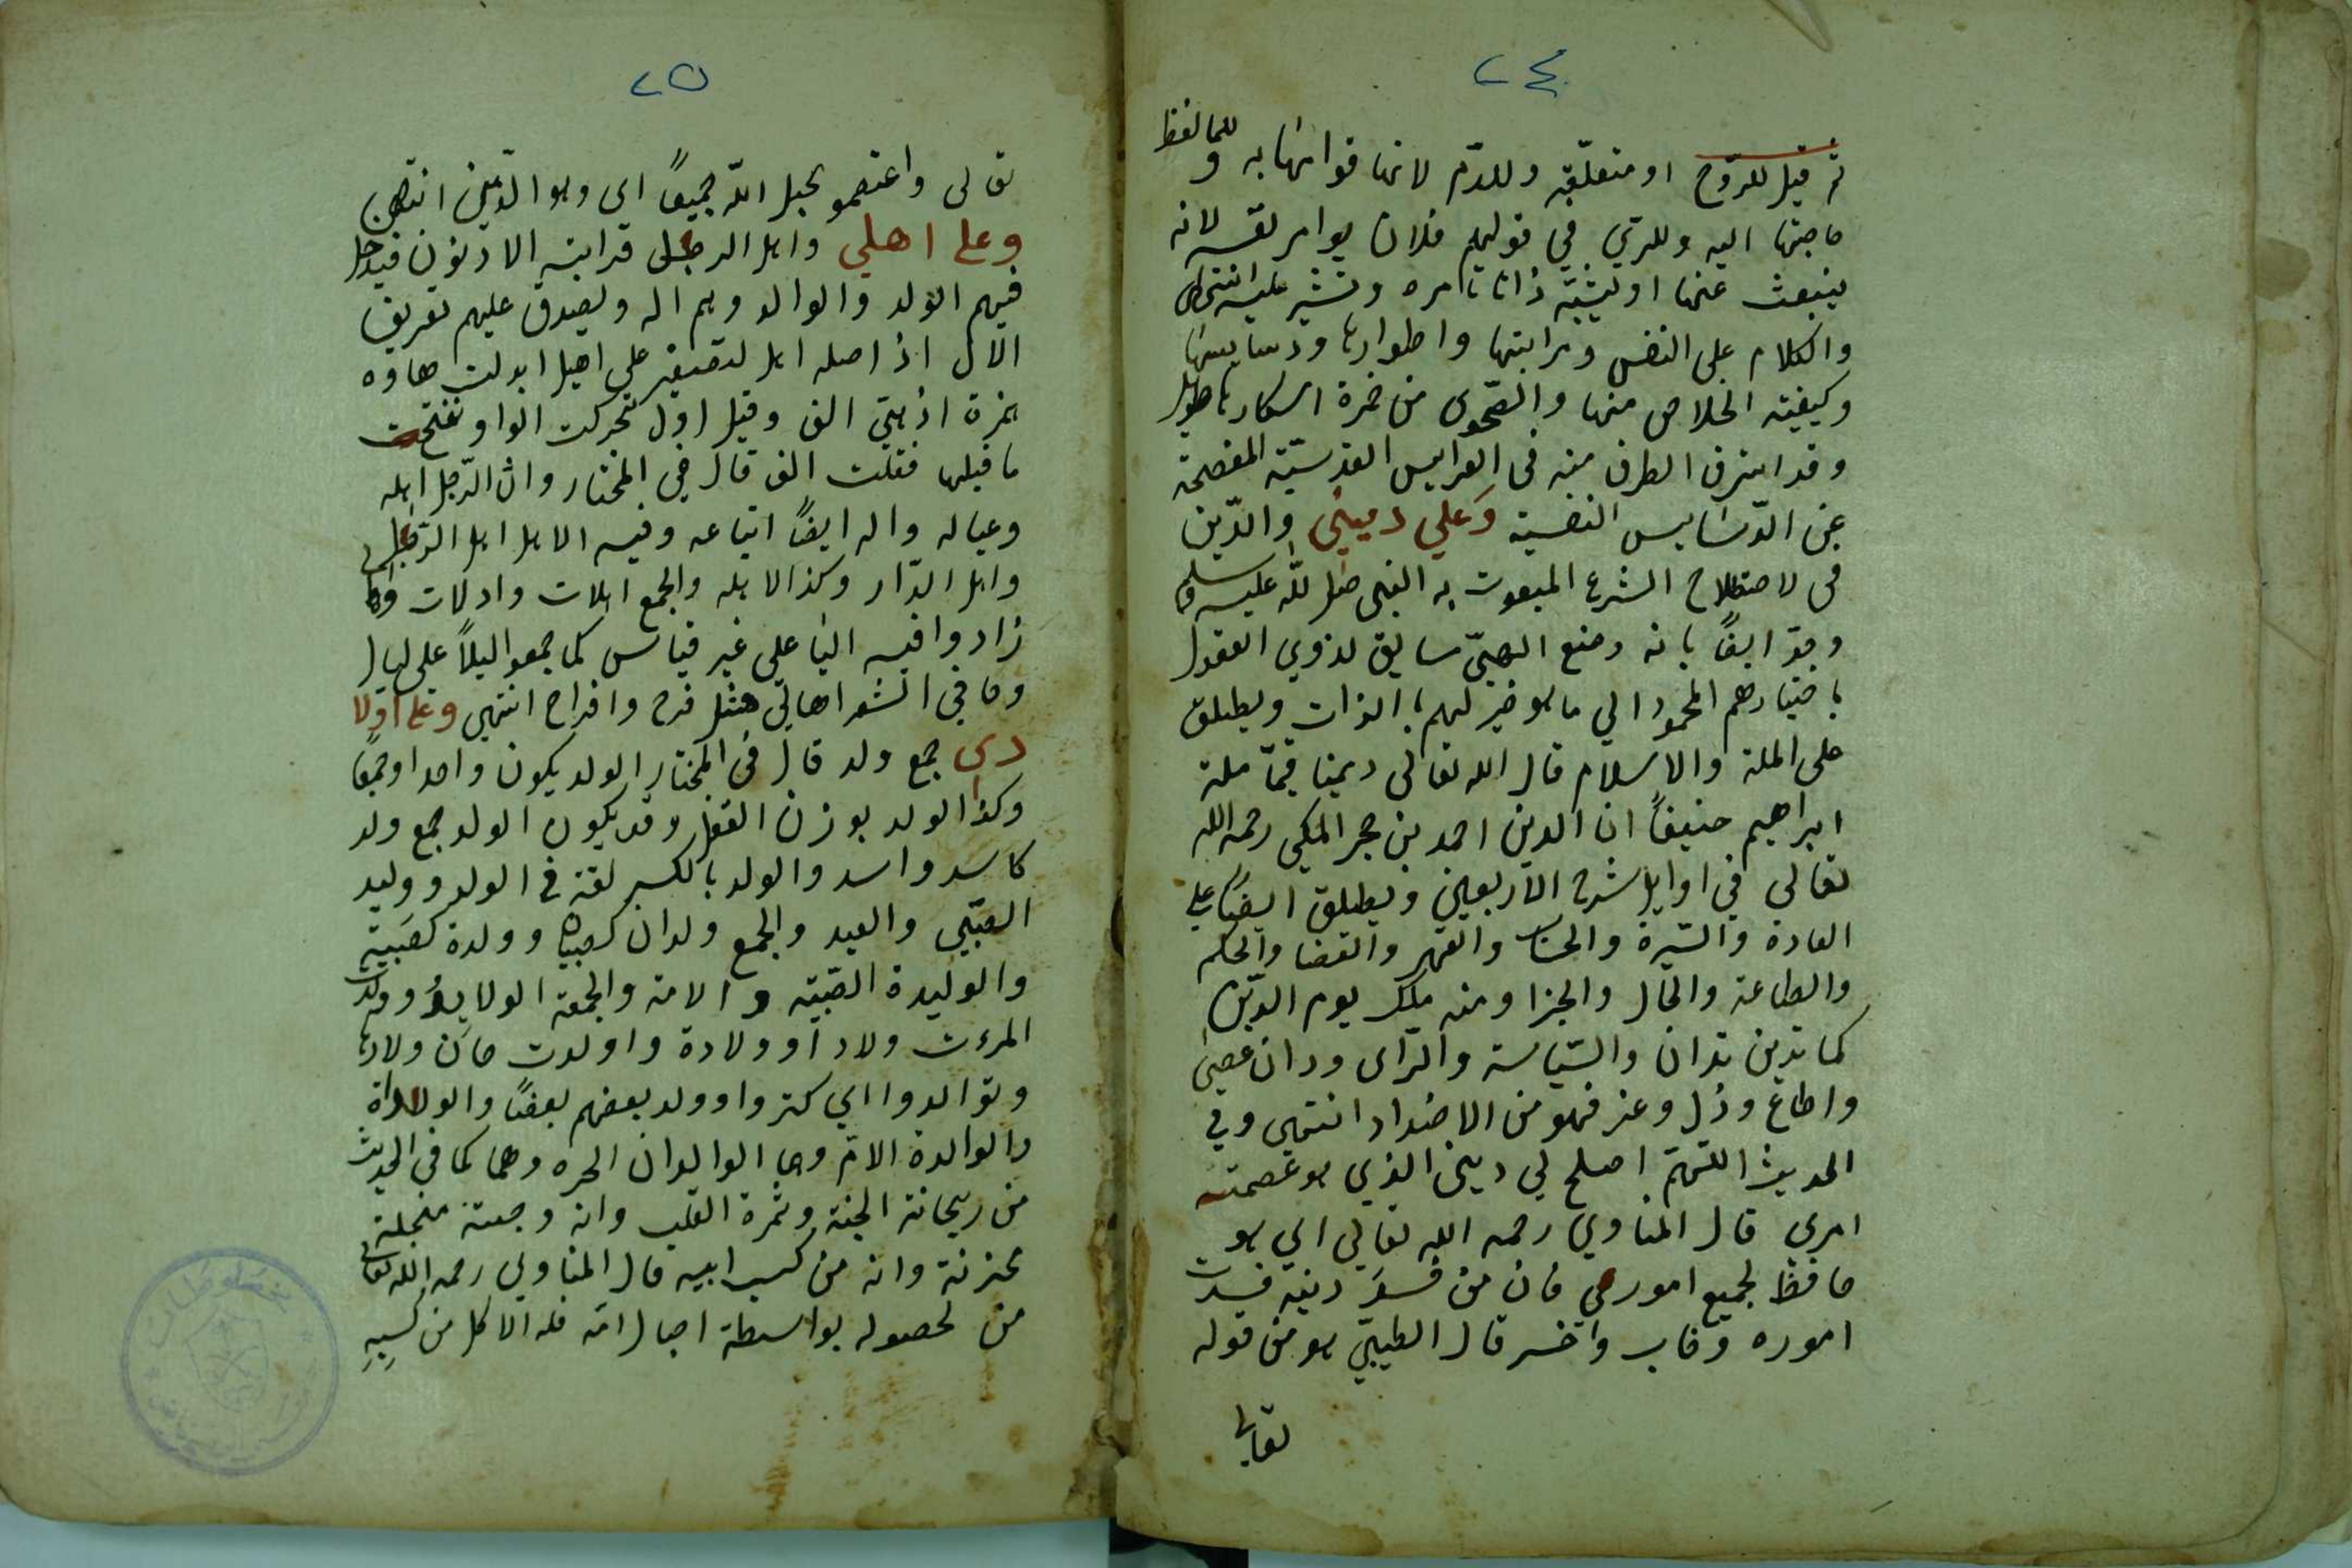 ٢٤
ثم قيل للروح او متعلقه وللدم لانها قوامها به وللما لفظ
حاجتها اليه وللرئي في قولهم فلان يوامر نفسه لانه
ينبعث عنها او يشبه ذاتا تامره وتشير عليه انتهى
والكلام على النفس ومراتبها واطوارها ودسايسها
وكيفية الخلاص منها والصحوى من خمرة اسكارها طويل
وقد اشرف الطرف منه فى العرايس القدسيّة المفصحة
عن الدّسايس النفسية وَعلي ديني والدّين
فى لاصطلاح الشرع المبعوث به النبى صلى الله عليه وسلم
وحد ايضًا بانه وضع الهىّ سايق لذوي العقول
باختيارهم المحمود الي ما هو خير لهم بالذات ويطلق
على الملة والاسلام قال الله تعالى دينا قيمًا ملة
ابراهيم حنيفًا ان الدين احمد بن حجر المكي رحمه الله
تعالى في اوايل شرح الاربعين ويطلق ايضًا على
العادة والسّيرة والحساب والقهر والقضا والحكم
والطاعة والحال والجزا ومنه ملك يوم الدّين
كما تدين تدان والسّياسة والرّاى ودان عصى
واطاع وذل وعز فهو من الاضداد انتهى وفي
الحديث اللّهمّ اصلح لي ديني الذي هو عصمته
امري قال المناوي رحمه الله تعالي اي هو
حافظ لجميع اموري فان من فسد دينه فسدت
اموره وخاب وخسر قال الطيبيّ هو من قوله
تعالى
٢٥
تعالى واعتصمو بحبل اللّه جميعًا اى وهو الدّين انتهى
وعلى اهلي واهل الرجل قرابته الادنون فيدخل
فيهم الولد والوالد وهم اله ويصدق عليهم تعريف
الال اذ اصله اهل لتصغير على اهيل ابدلت هاوه
همزة اذ هي الف وقيل اول تحركت الواو نفتحت
ما قبلها فقلت الف قال في المختار وال الرّجل اهله
وعياله واله ايضًا اتباعه وفيه الاهل اهل الرّجل
واهل الدّار وكذا الاهله والجمع اهلات واهلات واها
زادوا فيه اليا على غير قياس كما جمعوا ليلًا على ليال
وجا في الشعر اهالى مثل فرح وافراح انتهى وعلى اولا
دى جمع ولد قال فى المختار الولد يكون واحدا وجمعًا
وكذا الولد بوزن القفل وقد يكون الولد جمع ولد
كاسد واسد والولد بالكسر لغة في الولد ووليد
الصبّي والعبد والجمع ولدان كصبيان وولدة كصَبية
والوليدة الصّبيه والامة والجمعة الولايدُ وولدت
المرءت ولادا وولادة واولدت حان ولادها
وتوالدوا اي كثروا وولد بعضهم بعضًا والوالد الاب
والوالدة الامّ وهما الوالدان الحره وهما كما في الحديث
من ريحانة الجنة وثمرة القلب وانه مجبنة مبخلة
محزنة وانه من كسب ابيه قال المناوي رحمه الله تعالى
من لحصوله بواسطة احبال امّه فله الاكل من كسِبِهِ